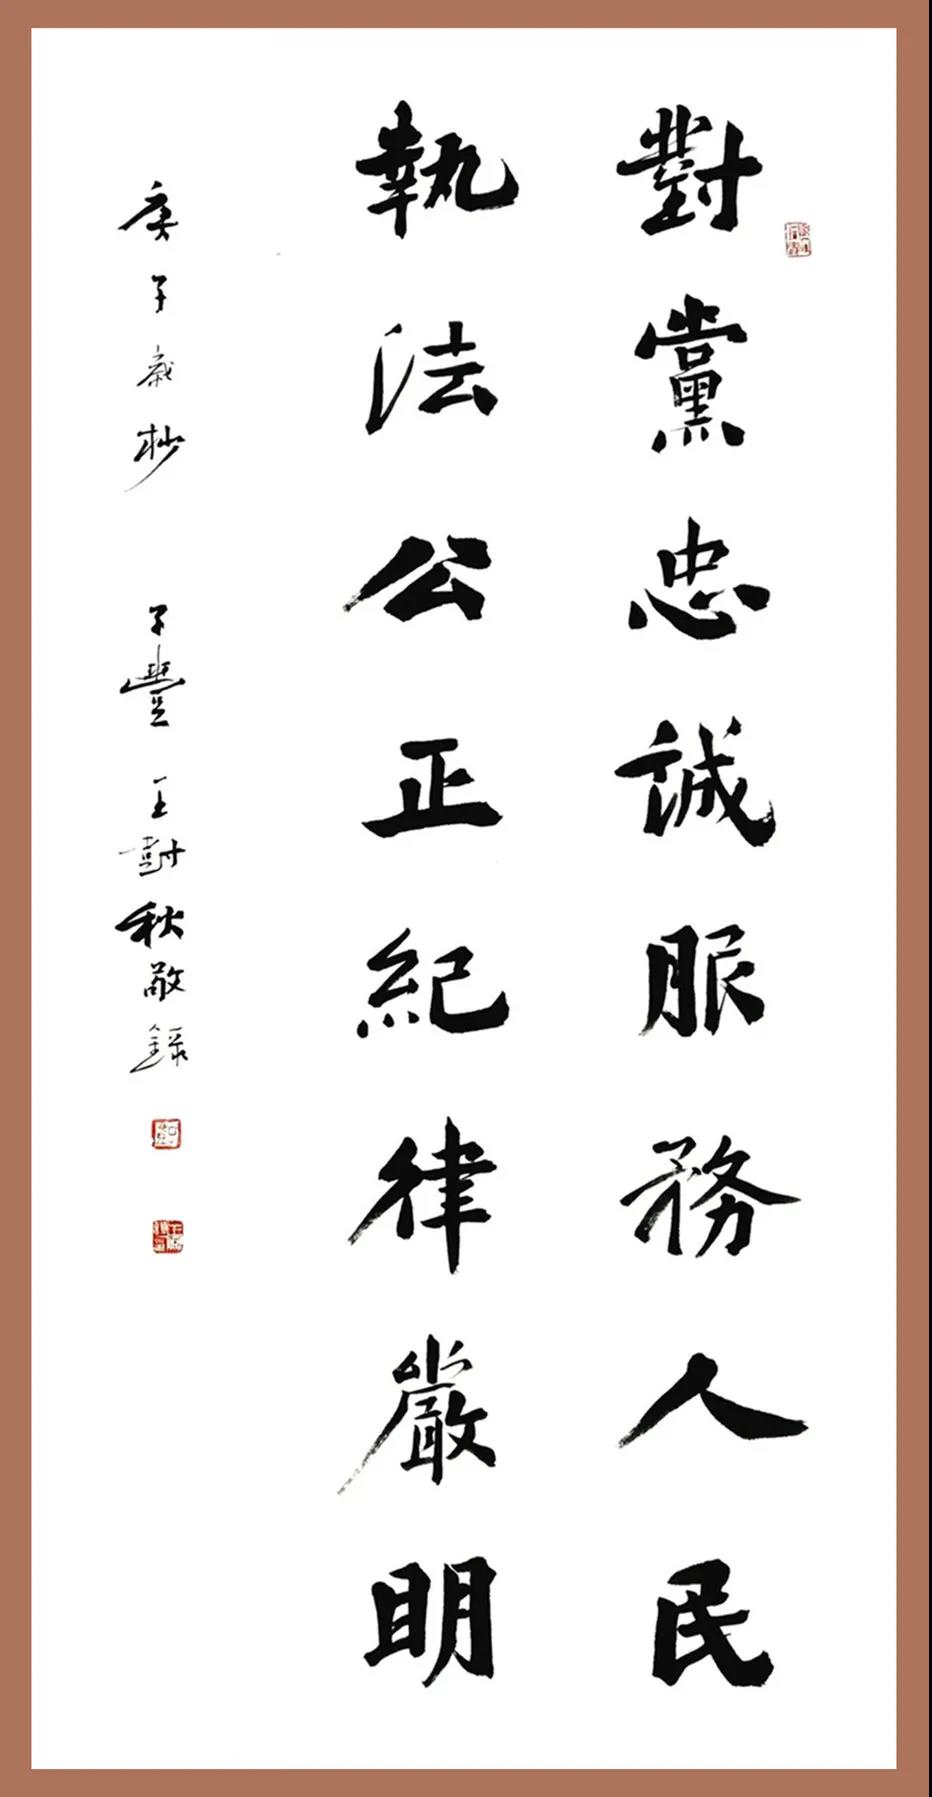 對黨忠誠服務人民
執法公正紀律嚴明
庚子歲杪 子豐 王對秋敬錄